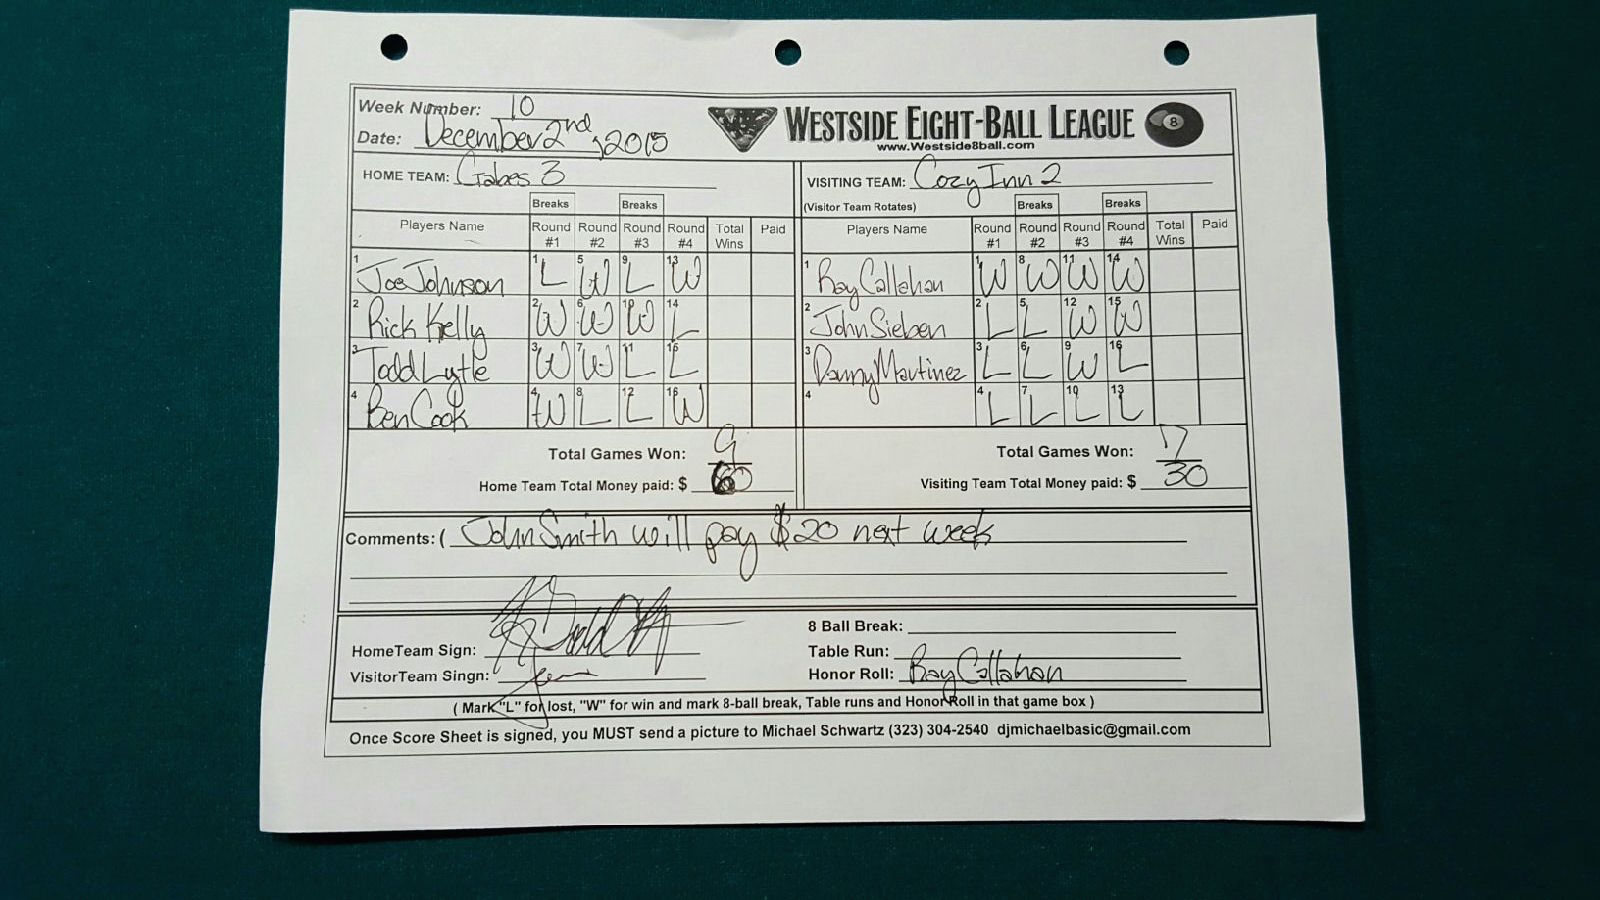 Week Number: 10
Date: December 2nd, 2015
WESTSIDE EIGHT-BALL LEAGUE 8
www.Westside8ball.com
HOME TEAM: Gabes 3
VISITING TEAM: Cozy Inn 2
(Visitor Team Rotates)
Breaks Breaks Breaks Breaks
Players Name Round #1 Round #2 Round #3 Round #4 Total Wins Paid Players Name Round #1 Round #2 Round #3 Round #4 Total Wins Paid
1 Joe Johnson 1 L 5 W 9 L 13 W 1 Ray Callahan 1 W 8 W 11 W 14 W
2 Rick Kelly 2 W 6 W 10 W 14 L 2 John Sieben 2 L 5 L 12 W 15 W
3 Todd Lytle 3 W 7 W 11 L 15 L 3 Danny Martinez 3 L 6 L 9 W 16 L
4 Ben Cook 4 W 8 L 12 L 16 W 4 4 L 7 L 10 L 13 L
Total Games Won: 9 Total Games Won: 7
Home Team Total Money paid: $ 60 Visiting Team Total Money paid: $ 30
Comments: ( John Smith will pay $20 next week
8 Ball Break:
HomeTeam Sign: Table Run:
VisitorTeam Singn: Honor Roll: Ray Callahan
( Mark "L" for lost, "W" for win and mark 8-ball break, Table runs and Honor Roll in that game box )
Once Score Sheet is signed, you MUST send a picture to Michael Schwartz (323) 304-2540 djmichaelbasic@gmail.com